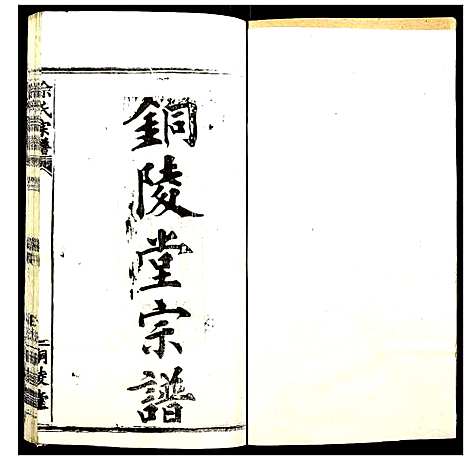 銅陵堂宗譜
余氏宗譜
銅陵堂